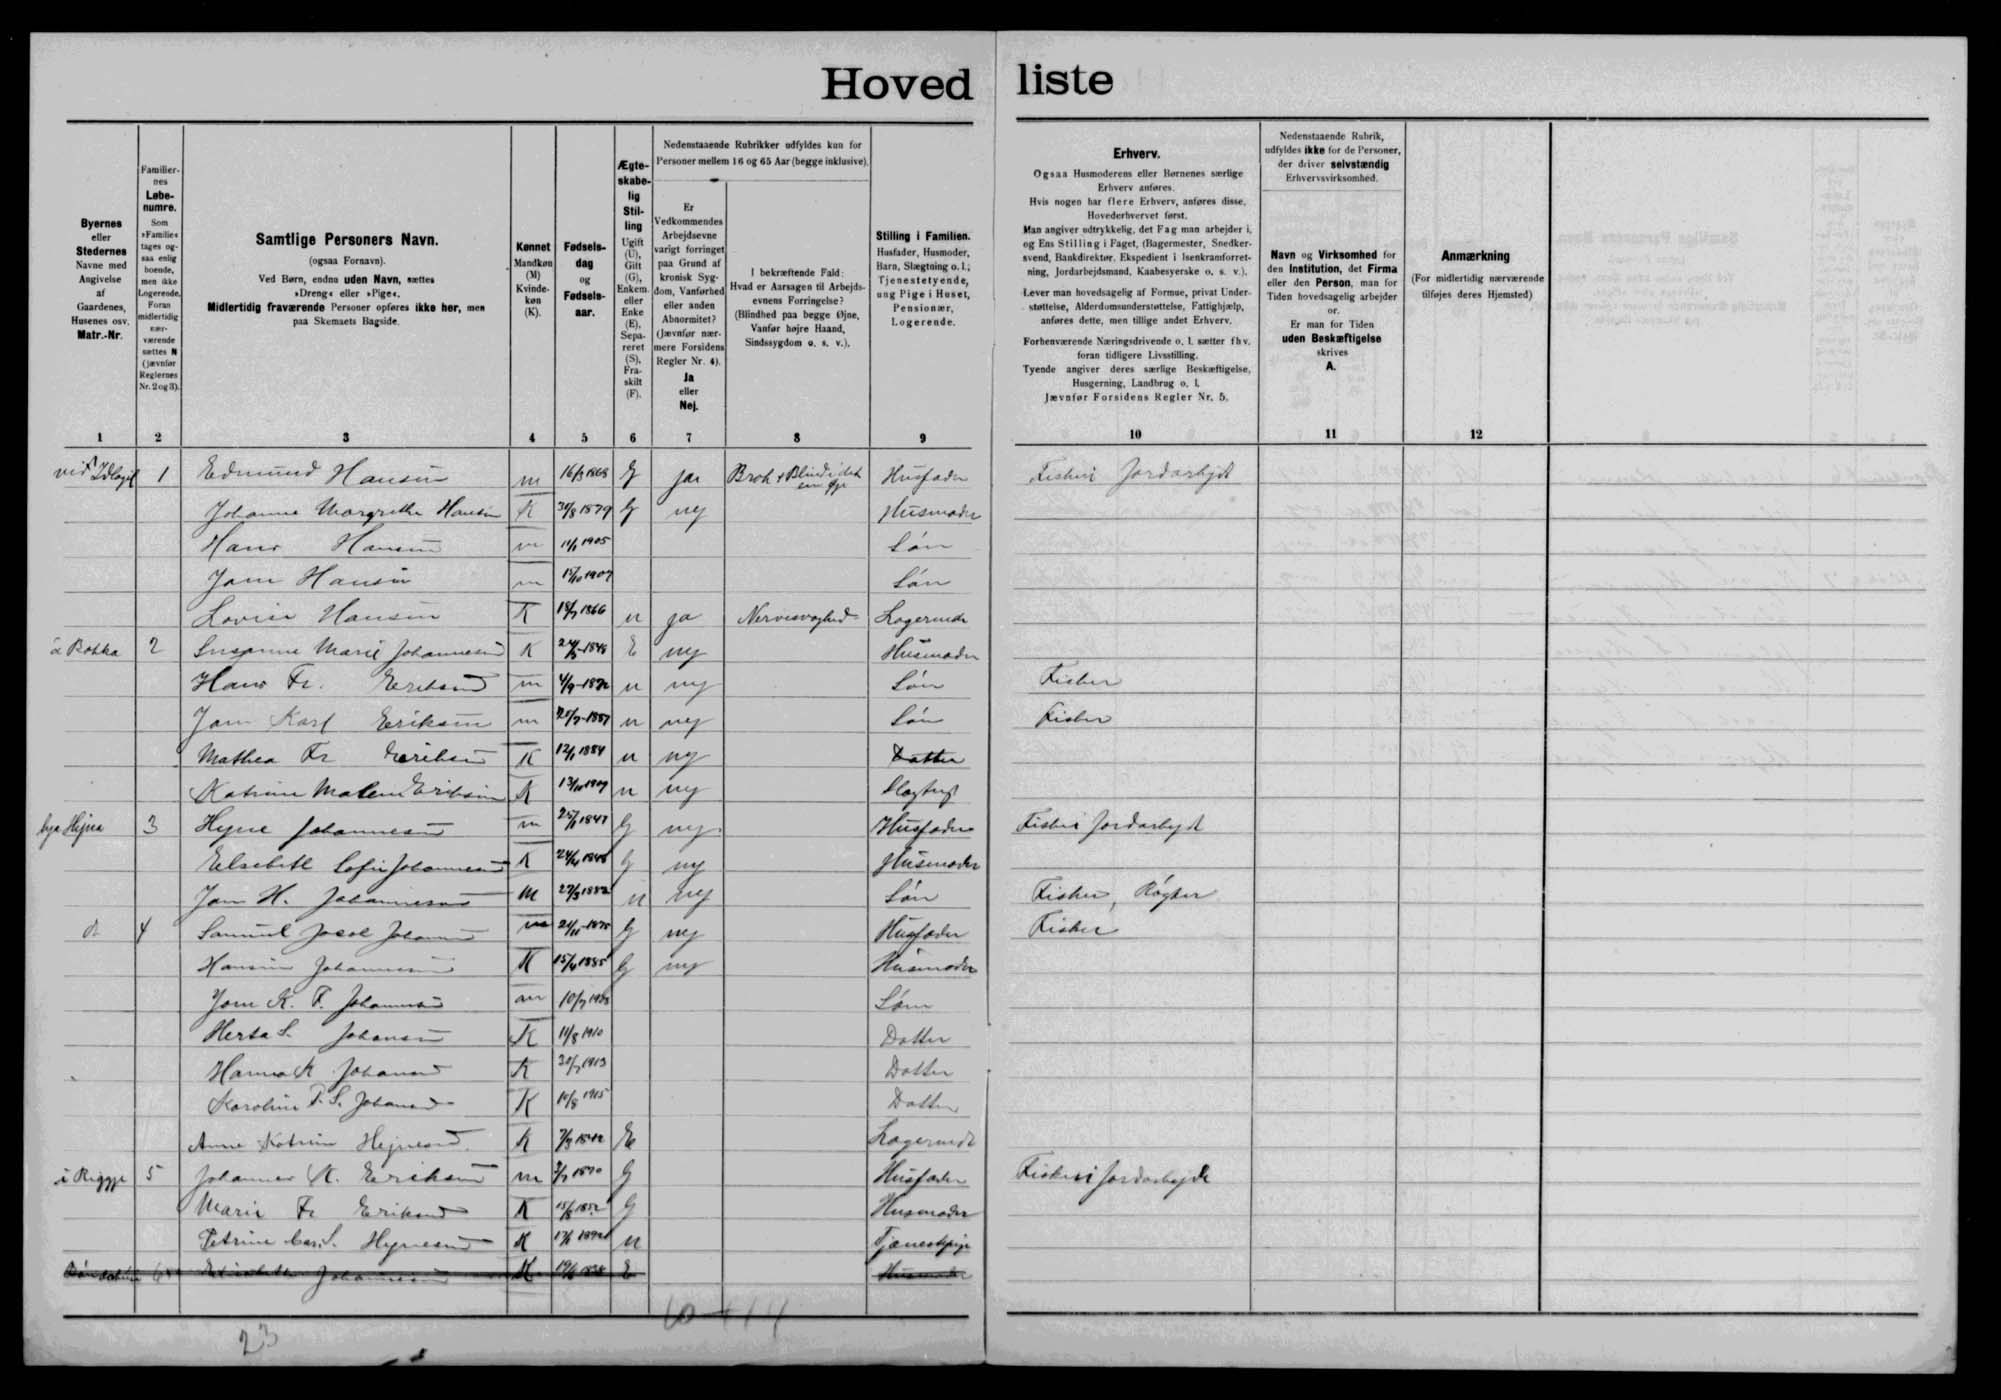 Hoved liste
Byernes
eller
Stedernes
Navne med
Angivelse
af
Gaardenes,
Husenes osv.
Matr.-Nr.
Familier-
nes
Løbe-
numre.
Som
»Familie«
tages og-
saa enlig
boende,
men ikke
Logerende.
Foran
midlertidig
nær-
værende
sættes N
(jævnfør
Reglernes
Nr. 2 og 3).
Samtlige Personers Navn.
(ogsaa Fornavn).
Ved Børn, endnu uden Navn, sættes
»Dreng« eller »Pige«.
Midlertidig fraværende Personer opføres ikke her, men
paa Skemaets Bagside.
Kønnet
Mandkøn
(M)
Kvinde-
køn
(K).
Fødsels-
dag
og
Fødsels-
aar.
Ægte-
skabe-
lig
Stil-
ling
Ugift
(U),
Gift
(G),
Enkem.
eller
Enke
(E),
Sepa-
reret
(S),
Fra-
skilt
(F).
Nedenstaaende Rubrikker udfyldes kun for
Personer mellem 16 og 65 Aar (begge inklusive).
Er
Vedkommendes
Arbejdsevne
varigt forringet
paa Grund af
kronisk Syg-
dom, Vanførhed
eller anden
Abnormitet?
(Jævnfør nær-
mere Forsidens
Regler Nr. 4).
Ja
eller
Nej.
I bekræftende Fald:
Hvad er Aarsagen til Arbejds-
evnens Forringelse?
(Blindhed paa begge Øjne,
Vanfør højre Haand,
Sindssygdom o. s. v.).
Stilling i Familien.
Husfader, Husmoder,
Barn, Slægtning o. l.;
Tjenestetyende,
ung Pige i Huset,
Pensionær,
Logerende.
Erhverv.
Ogsaa Husmoderens eller Børnenes særlige
Erhverv anføres.
Hvis nogen har flere Erhverv, anføres disse,
Hovederhvervet først.
Man angiver udtrykkelig, det Fag man arbejder i,
og Ens Stilling i Faget, (Bagermester, Snedker-
svend, Bankdirektør, Ekspedient i Isenkramforret-
ning, Jordarbejdsmand, Kaabesyerske o. s. v.).
Lever man hovedsagelig af Formue, privat Under-
støttelse, Alderdomsunderstøttelse, Fattighjælp,
anføres dette, men tillige andet Erhverv.
Forhenværende Næringsdrivende o. l. sætter fhv.
foran tidligere Livsstilling.
Tyende angiver deres særlige Beskæftigelse,
Husgerning, Landbrug o. l.
Jævnfør Forsidens Regler Nr. 5.
Nedenstaaende Rubrik,
udfyldes ikke for de Personer,
der driver selvstændig
Erhvervsvirksomhed.
Navn og Virksomhed for
den Institution, det Firma
eller den Person, man for
Tiden hovedsagelig arbejder
for.
Er man for Tiden
uden Beskæftigelse
skrives
A.
Anmærkning
(For midlertidig nærværende
tilføjes deres Hjemsted)
1 2 3 4 5 6 7 8 9 10 11 12
1 Edmund Hansen m 16/3 1868 G ja Brok + Blind i det ene Øje Husfader Fiskeri Jordarbejde
Johanne Margrethe Hansen K 30/8 1879 G nej Husmoder
Hans Hansen m 11/1 1905 Søn
Jom Hansen m 15/10 1907 Søn
Lovise Hansen K 18/7 1866 u ja Nervesvaghed Logerende
2 Susanne Marie Johannesen K E nej Husmoder
Hans Fr. Eriksen m u nej Søn Fisker
Karl Eriksen m u nej Søn Fisker
Mathea Fr Eriksen K 12/1 1884 u nej Datter
Katrine Malene Eriksen K u nej
3 Hejne Johannesen m 25/1 1847 G nej Husfader Fiskeri Jordarbejde
Elsebeth Sofie Johannesen K G nej Husmoder
H. Johannesen M 27/3 1882 u nej Søn Fisker, Røgter
4 Samuel Jacob m G nej Husfader Fisker
Hansine Johannesen K 15/4 1885 G nej Husmoder
K. F. Johannesen m Søn
Herta S. Johansen K 11/8 1910 Datter
Hanna K Johansen K 30/7 1913 Datter
Karoline F. S. Johansen K 10/8 1915 Datter
Anne Katrine Hejnesen K E Logerende
i Rygge 5 Johannes K. Eriksen m G Husfader Fiskeri Jordarbejde
Marie Fr Eriksen K G Husmoder
Petrine Hejnesen K u Tjenestepige
6 Johannesen K E Husmoder
23
10 + 14